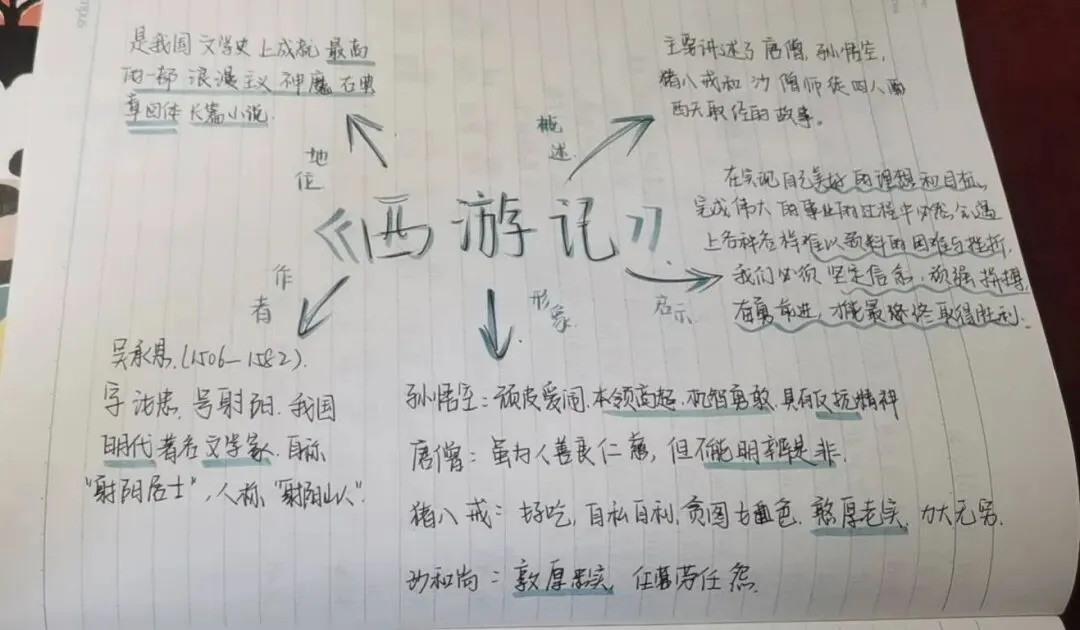 是我国文学史上成就最高
的一部浪漫主义神魔古典
章回体长篇小说.
地位
概述
主要讲述了唐僧,孙悟空,
猪八戒和沙僧师徒四人西
西天取经的故事。
《西游记》
在实现自己美好的理想和目标、
完成伟大的事业的过程中必然会遇
上各种各样难以预料的困难与挫折,
我们必须坚定信念,顽强拼搏,
奋勇前进,才能最终终取得胜利.
启示
作者
形象
吴承恩.(1506—1582).
字汝忠,号射阳.我国
明代著名文学家.自称
"射阳居士",人称"射阳山人".
孙悟空:顽皮爱闹.本领高超.机智勇敢,具有反抗精神
唐僧:虽为人善良仁慈,但不能明辨是非.
猪八戒:好吃,自私自利,贪图女色,憨厚老实,力大无穷.
沙和尚:敦厚忠实 任劳任怨.